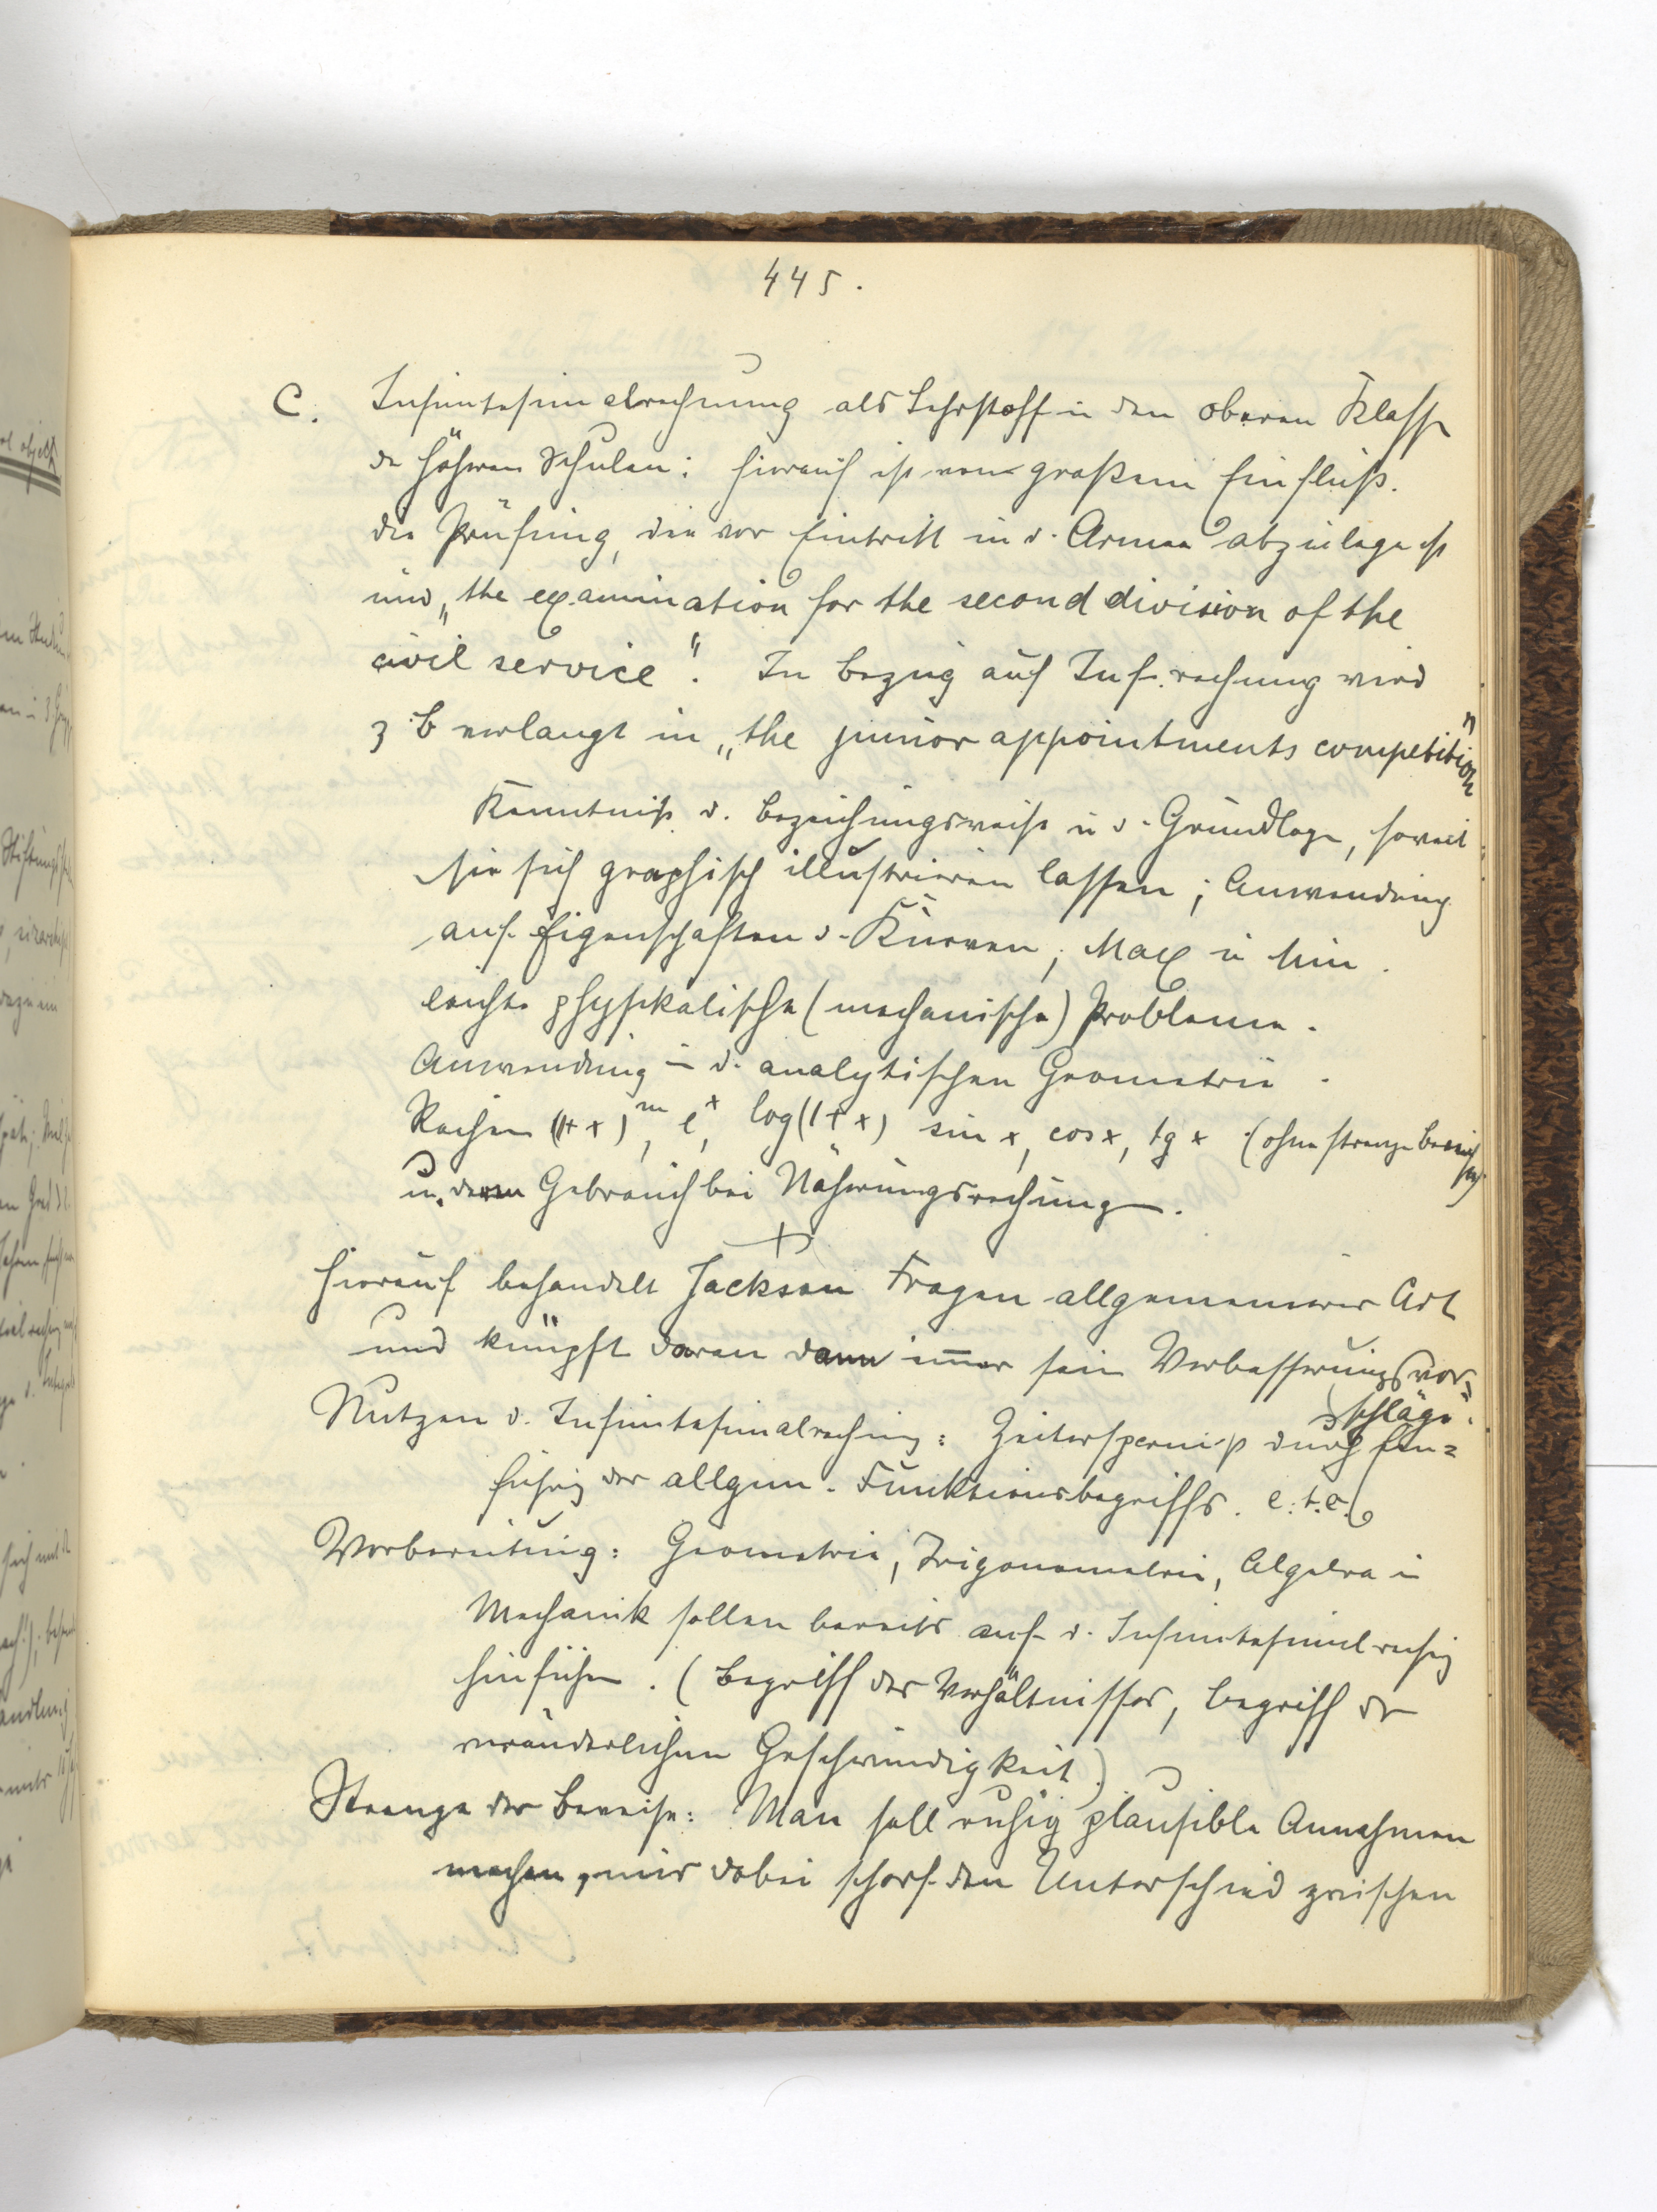 445.
C. Infinitesimalrechnung als Lehrstoff in den oberen Klassen
der höheren Schulen: Hierauf ist von großem Einfluß.
die Prüfung, die vor Eintritt in d. Armee abzulegen ist
und „the examination for the second division of the
civil service". In Bezug auf Inf. rechnung wird
z B verlangt in „the junior appointments competition"
Kenntniß d. Bezeichungsweise u d. Grundlagen, soweit
sie sich graphisch illustrieren lassen; Anwendung
auf Eigenschaften d. Kurven, Max u Min.
leichte physikalische (mechanische) Probleme.
Anwendung in d. analytischen Geometrie.
Reihen (1+x)^m, e^x, log(1+x) sin x, cos x, tg x (ohne strenge Beweise)
u. deren Gebrauch bei Näherungsrechnungen.
Hierauf behandelt Jackson Fragen allgemeinerer Art
und knüpft daran dann immer sein Verbesserungsvor=
schläge.
Nutzen d. Infinitesimalrechnung: Zeitersparniß durch Ein=
führung des allgem. Funktionsbegriffs. e.t.c.
Vorbereitung: Geometrie, Trigonometrie, Algebra u
Mechanik sollen bereits auf d. Infinitesimalrechng
hinführen. (Begriff des Verhältnisses, Begriff der
veränderlichen Geschwindigkeit)
Strenge der Beweise: Man soll ruhig plausible Annahmen
machen, nur dabei scharf den Unterschied zwischen